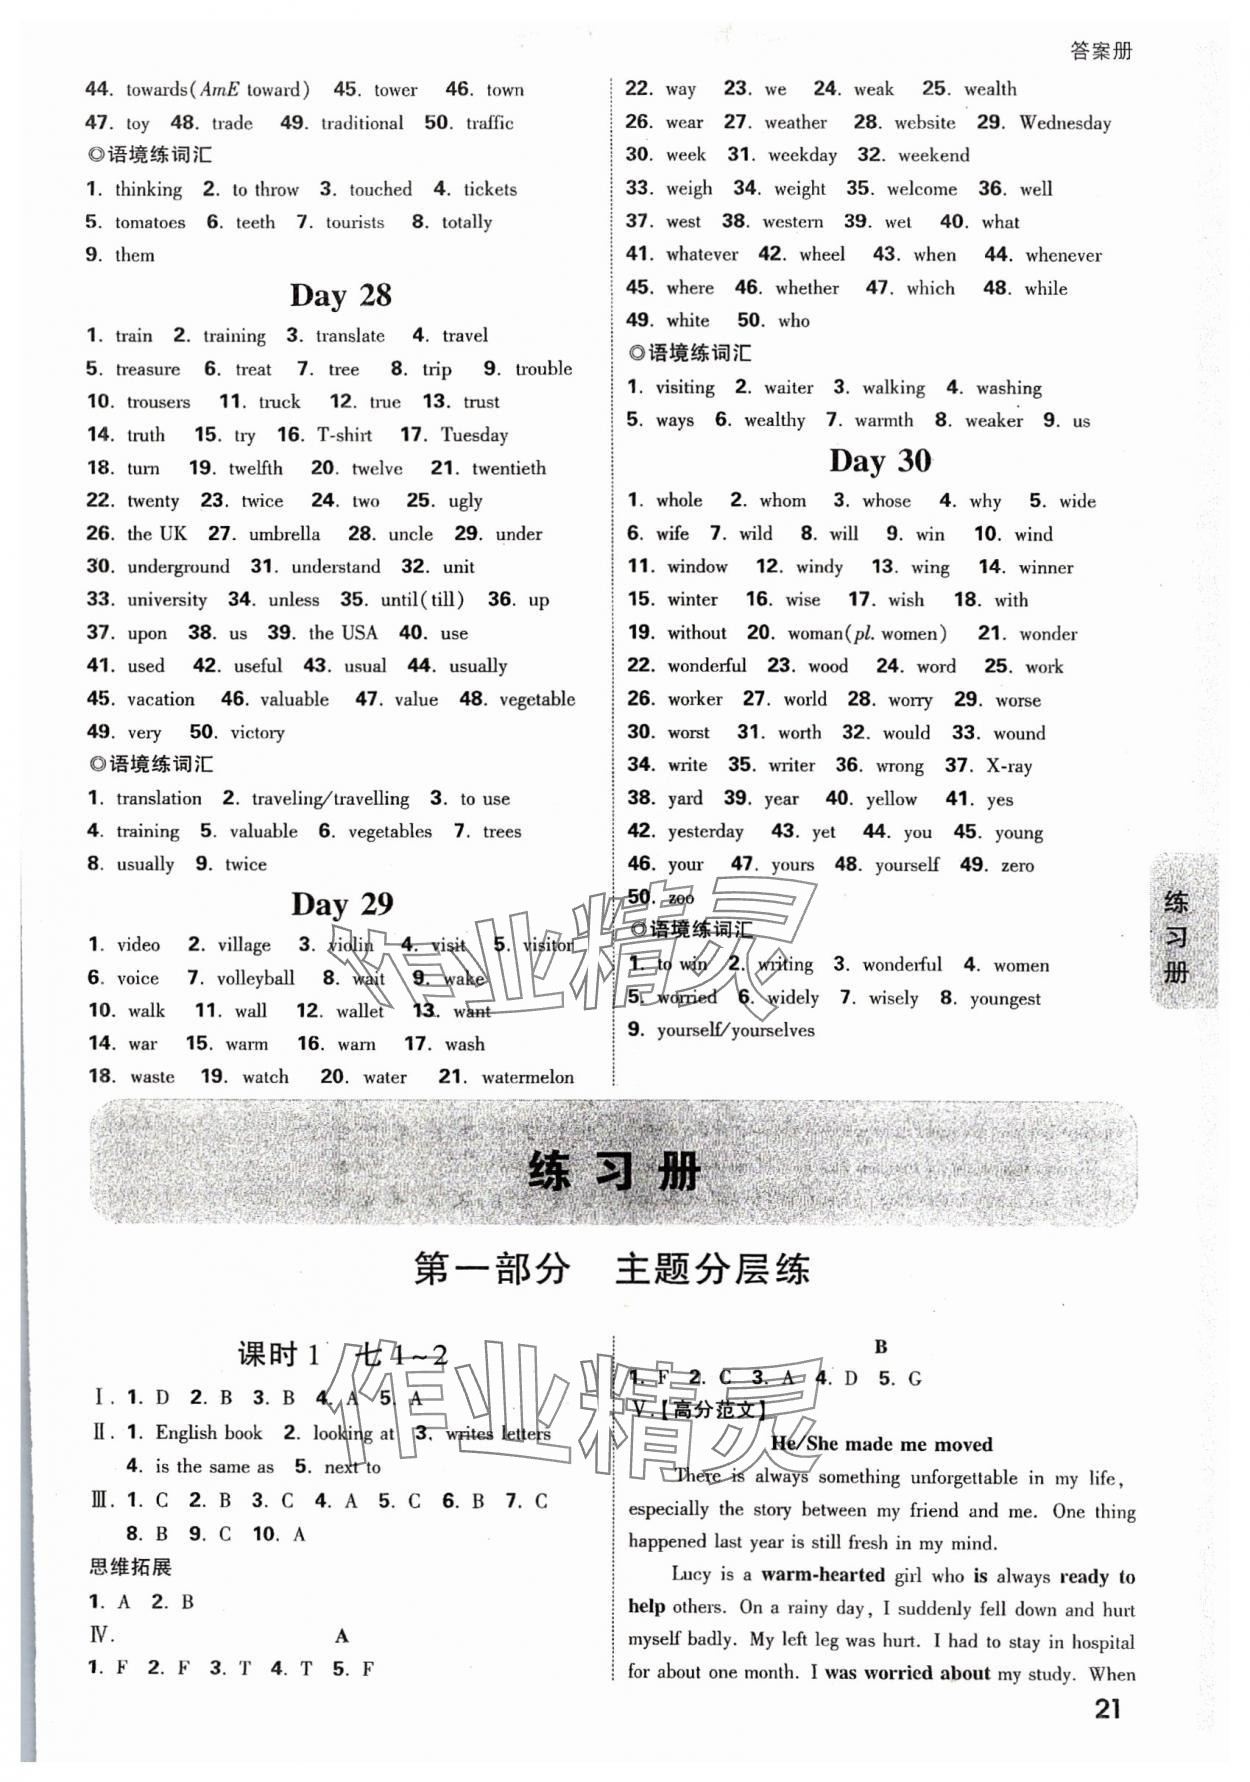 答案册
44. towards(AmE toward) 45. tower 46. town
47. toy 48. trade 49. traditional 50. traffic
◎语境练词汇
1. thinking 2. to throw 3. touched 4. tickets
5. tomatoes 6. teeth 7. tourists 8. totally
9. them
Day 28
1. train 2. training 3. translate 4. travel
5. treasure 6. treat 7. tree 8. trip 9. trouble
10. trousers 11. truck 12. true 13. trust
14. truth 15. try 16. T-shirt 17. Tuesday
18. turn 19. twelfth 20. twelve 21. twentieth
22. twenty 23. twice 24. two 25. ugly
26. the UK 27. umbrella 28. uncle 29. under
30. underground 31. understand 32. unit
33. university 34. unless 35. until(till) 36. up
37. upon 38. us 39. the USA 40. use
41. used 42. useful 43. usual 44. usually
45. vacation 46. valuable 47. value 48. vegetable
49. very 50. victory
◎语境练词汇
1. translation 2. traveling/travelling 3. to use
4. training 5. valuable 6. vegetables 7. trees
8. usually 9. twice
Day 29
1. video 2. village 3. violin 4. visit 5. visitor
6. voice 7. volleyball 8. wait 9. wake
10. walk 11. wall 12. wallet 13. want
14. war 15. warm 16. warn 17. wash
18. waste 19. watch 20. water 21. watermelon
22. way 23. we 24. weak 25. wealth
26. wear 27. weather 28. website 29. Wednesday
30. week 31. weekday 32. weekend
33. weigh 34. weight 35. welcome 36. well
37. west 38. western 39. wet 40. what
41. whatever 42. wheel 43. when 44. whenever
45. where 46. whether 47. which 48. while
49. white 50. who
◎语境练词汇
1. visiting 2. waiter 3. walking 4. washing
5. ways 6. wealthy 7. warmth 8. weaker 9. us
Day 30
1. whole 2. whom 3. whose 4. why 5. wide
6. wife 7. wild 8. will 9. win 10. wind
11. window 12. windy 13. wing 14. winner
15. winter 16. wise 17. wish 18. with
19. without 20. woman(pl. women) 21. wonder
22. wonderful 23. wood 24. word 25. work
26. worker 27. world 28. worry 29. worse
30. worst 31. worth 32. would 33. wound
34. write 35. writer 36. wrong 37. X-ray
38. yard 39. year 40. yellow 41. yes
42. yesterday 43. yet 44. you 45. young
46. your 47. yours 48. yourself 49. zero
50. zoo
◎语境练词汇
1. to win 2. writing 3. wonderful 4. women
5. worried 6. widely 7. wisely 8. youngest
9. yourself/yourselves
练习册
作业精灵
练习册
第一部分 主题分层练
课时1 七1~2
Ⅰ. 1. D 2. B 3. B 4. A 5. A
Ⅱ. 1. English book 2. looking at 3. writes letters
4. is the same as 5. next to
Ⅲ. 1. C 2. B 3. C 4. A 5. C 6. B 7. C
8. B 9. C 10. A
思维拓展
1. A 2. B
Ⅳ. A
1. F 2. F 3. T 4. T 5. F
B
1. F 2. C 3. A 4. D 5. G
Ⅴ.【高分范文】
He/She made me moved
There is always something unforgettable in my life,
especially the story between my friend and me. One thing
happened last year is still fresh in my mind.
Lucy is a warm-hearted girl who is always ready to
help others. On a rainy day, I suddenly fell down and hurt
myself badly. My left leg was hurt. I had to stay in hospital
for about one month. I was worried about my study. When
作业精灵
21